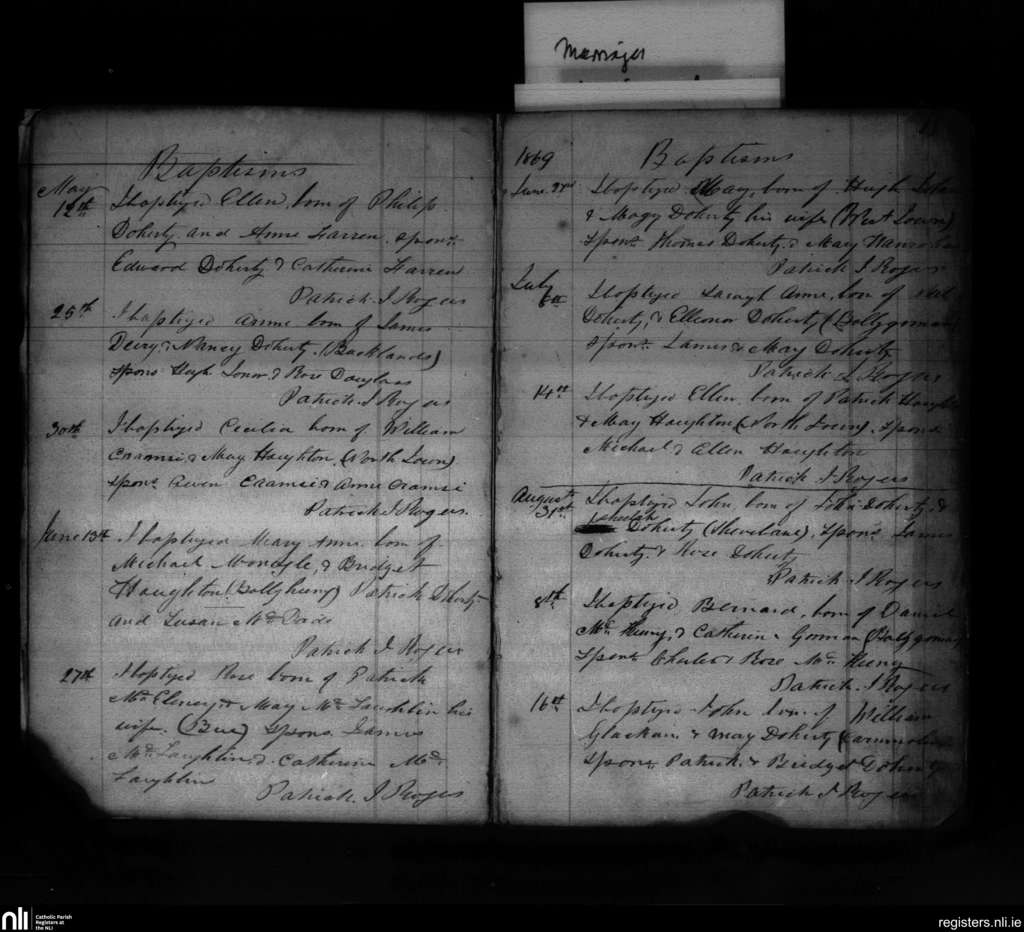 Marriages
Baptisms
May
12th I baptized Ellen, born of Philip
Doherty and Anne Farren. spons.
Edward Doherty & Catherine Farren
Patrick J Rogers
25th I baptized Anne born of James
Deiry & Nancy Doherty (Backlands)
spons Hugh & Rose Douglass
Patrick J Rogers
30th I baptized Cecilia born of William
Cramsi & May Haughton (North Town)
spons Owen Cramsie & Anne Cramsi
Patrick J Rogers.
June 13th I baptized Mary Anne born of
Michael Monigle, & Bridget
Haughton Patrick Doherty
and Susan
Patrick J Rogers
27th I baptized Rose born of Patrick
& May Mc Laughlin his
wife. (Bree) spons James
Mc Laughlin & Catherine Mc
Laughlin
Patrick. J Rogers
1869
Baptisms
June I baptized May, born of Hugh
& Magy Doherty his wife (West Town)
spons Thomas Doherty & May
Patrick J Rogers
July
6th I baptized Saragh Anne, born of
Doherty, & Elleonor Doherty
spons. James & May Doherty
Patrick J Rogers
14th I baptized Ellen born of Patrick
& May Haughton (North Town) spons
Michael & Ellen Haughton
Patrick J Rogers
August
31st I baptized John, born of John Doherty &
Doherty spons James
Doherty & Rose Doherty
Patrick J Rogers
8th I baptized Bernard, born of Daniel
Mc Heeny, & Catherin Gorman
spons Charles & Rose Mc Heeny
Patrick. J Rogers
16th I baptized John born of William
Glackain & May Doherty
spons. Patrick & Bridget Doherty
Patrick J Rogers
nli
Catholic Parish
Registers at
the NLI
registers.nli.ie